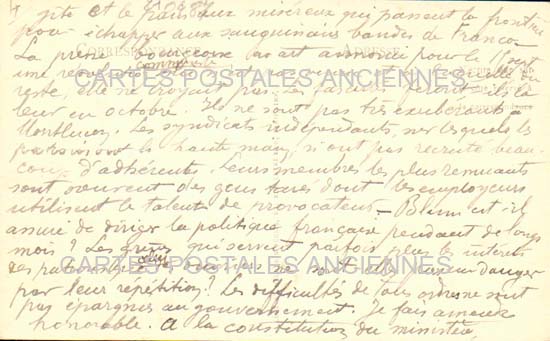 gîte et le pain aux miséreux qui passent la frontière
pour échapper aux sanguinaires bandes de Franco
La presse bourgeoise avait annoncé pour le 11 sept
une révolution communiste
reste, elle ne croyait pas. Les fascistes
leur en octobre. Ils ne sont pas très exubérants à
Montluçon. Les syndicats indépendants, sur lesquels les
patrons ont la haute main, n'ont pas recruté beau-
coup d'adhérents. Leurs membres les plus remuants
sont souvent des gens tarés dont les employeurs
utilisent le talent de provocateurs - Blum est il
assuré de diriger la politique française pendant de longs
mois? Les grèves qui servent parfois plus les intérêts
des patrons que ne sont elles un danger
par leur répétition? Les difficultés de tous ordres ne sont
pas épargnées au gouvernement. Je fais amende
honorable. A la constitution du ministère,
CORRESPONDANCE
ADRESSE
CARTES POSTALES ANCIENNES
CARTES POSTALES ANCIENNES